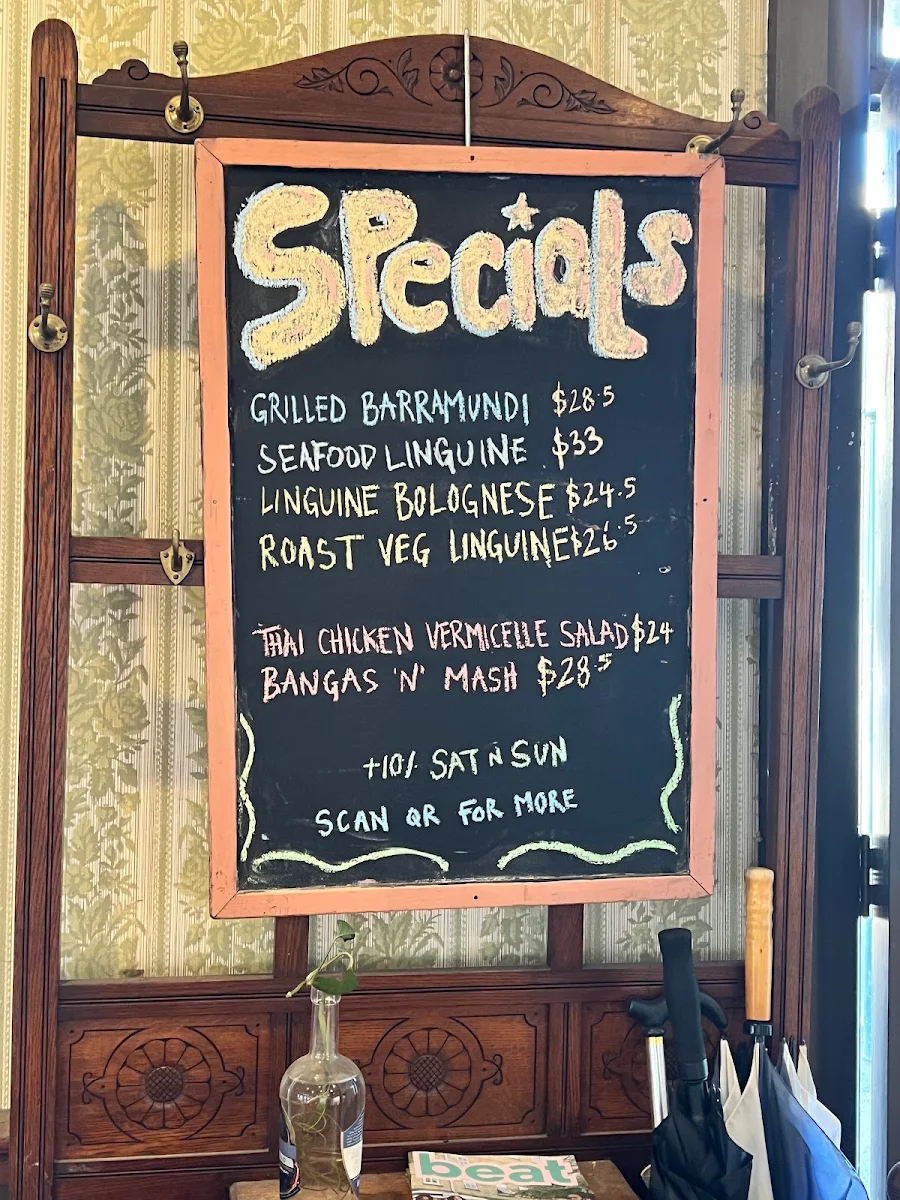 SPecials
GRILLED BARRAMUNDI $28.5
SEAFOOD LINGUINE $33
LINGUINE BOLOGNESE $24.5
ROAST VEG LINGUINE $26.5
THAI CHICKEN VERMICELLE SALAD $24
BANGAS 'N' MASH $28.5
+10% SAT N SUN
SCAN QR FOR MORE
beat